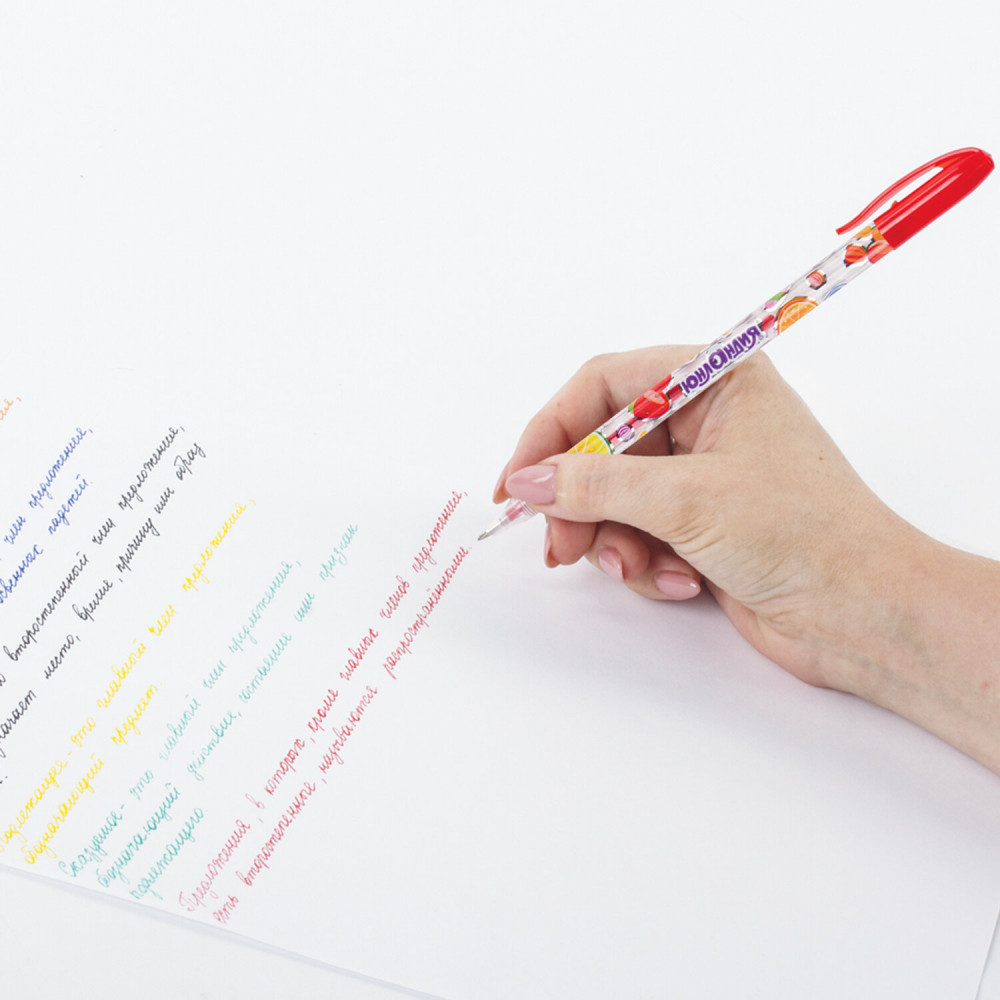 член предложения,
свенных падежей.
второстепенный член предложения,
значает место, время, причину или образ
Подлежащее - это главный член предложения,
обозначающий предмет.
Сказуемое - это главный член предложения,
обозначающий действие, состояние или признак
подлежащего.
Предложения, в которых, кроме главных членов предложения,
есть второстепенные, называются распространёнными.
ЮНЛАНДИЯ